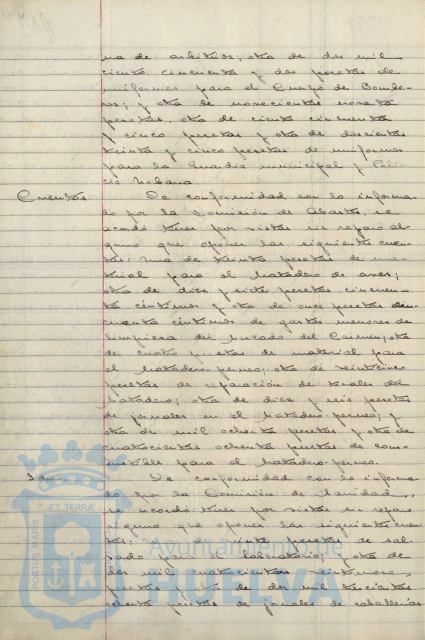 na de arbitrios; otra de dos mil
ciento cincuenta y dos pesetas de
uniformes para el Cuerpo de Bombe-
ros; y otra de novecientas noventa
pesetas, otra de ciento cincuenta
y cinco pesetas y otra de doscientas
treinta y cinco pesetas de uniformes
para la Guardia municipal y Poli-
cia Urbana.
Cuentas De conformidad con lo informa-
do por la Comisión de Abastos, se
acordó tener por vistas sin reparo al-
guno que oponer las siguientes cuen-
tas: Una de treinta pesetas de ma-
terial para el Matadero de aves;
otra de diez y siete pesetas cincuen-
ta céntimos y otra de once pesetas cin-
cuenta céntimos de gastos menores de
limpieza del mercado del Carmen; otra
de cuatro pesetas de material para
el Matadero perneo; otra de veinticinco
pesetas de reparación de del
Matadero; otra de diez y seis pesetas
de jornales en el Matadero perneo; y
otra de mil ochenta pesetas y otra de
cuatrocientas ochenta pesetas de com-
bustible para el Matadero perneo.
Idem De conformidad con lo informa-
do por la Comisión de Sanidad,
se acordó tener por vistas sin reparo
alguno que oponer las siguientes cuen-
tas: Una de veinte pesetas de sal-
vado para el laboratorio; otra de
dos mil cuatrocientas veintinueve
pesetas y otra de dos mil trescientas
ochenta pesetas de jornales de caballerías
PORTUS MARIS ET TERRÆ
Ayuntamiento de
HUELVA